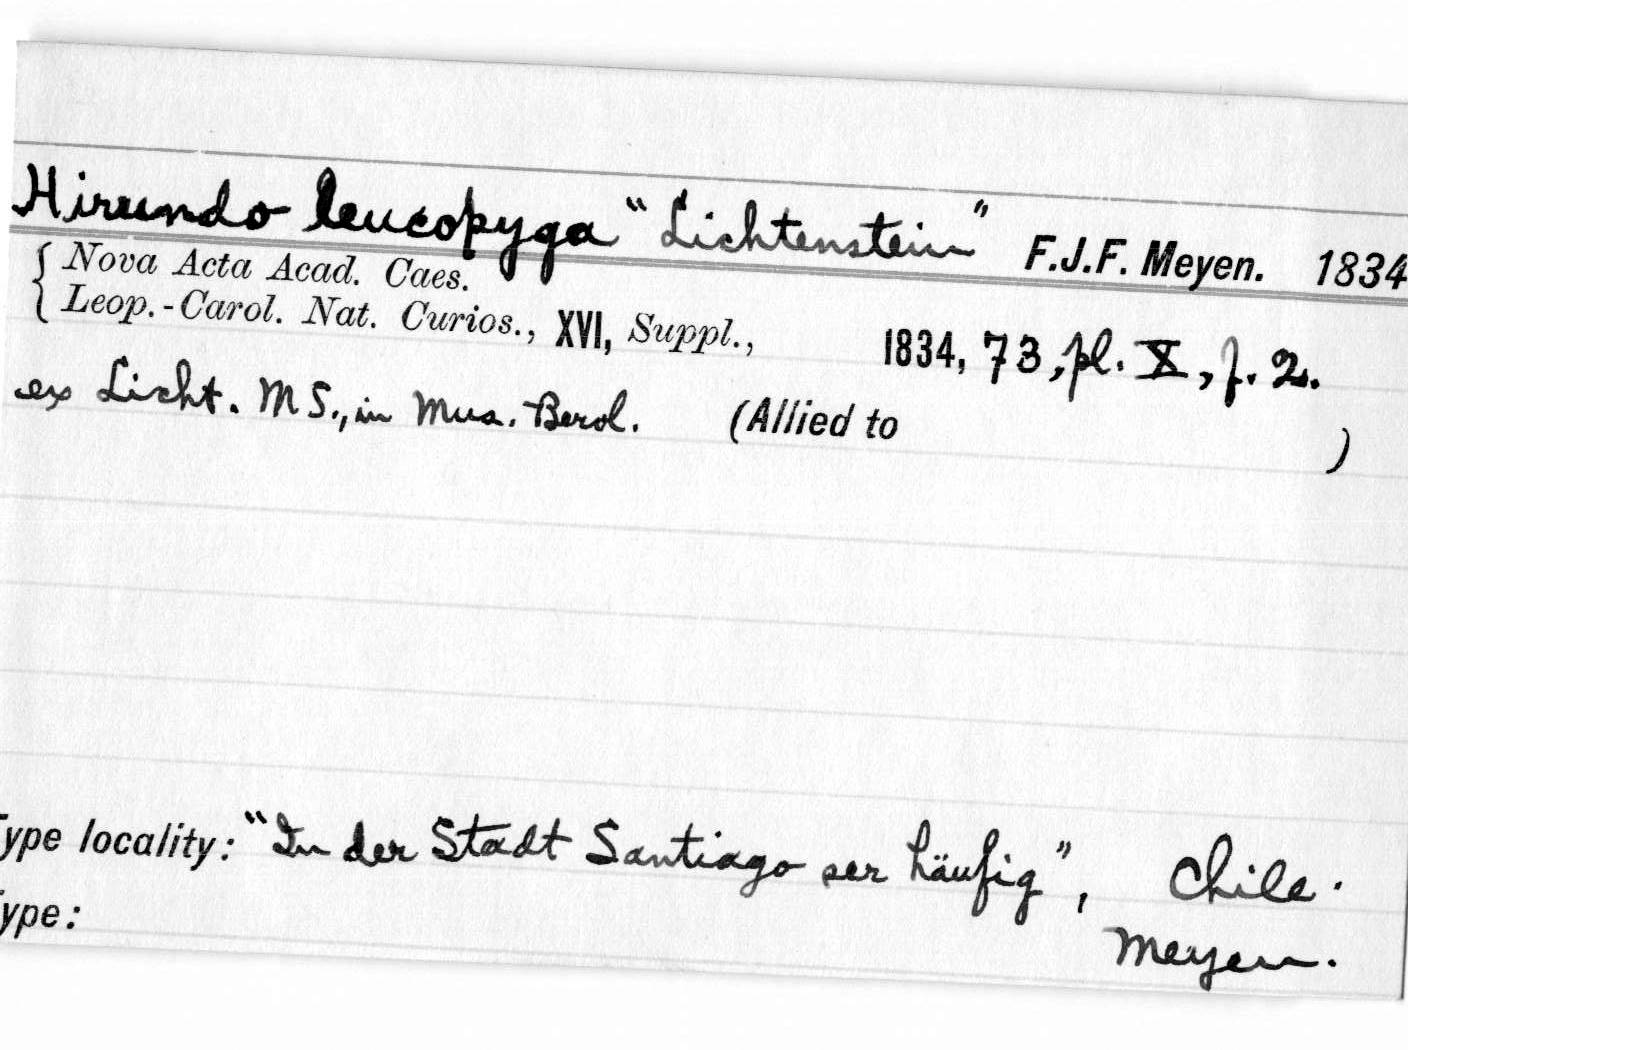 Hirundo leucopyga "Lichtenstein" F.J.F. Meyen. 1834
Nova Acta Acad. Caes.
Leop.-Carol. Nat. Curios., XVI, Suppl., 1834, 73, pl. X, f. 2.
ex Licht. MS., in Mus. Berol. (Allied to )
Type locality: "In der Stadt Santiago ser häufig", Chile.
Type: Meyen.